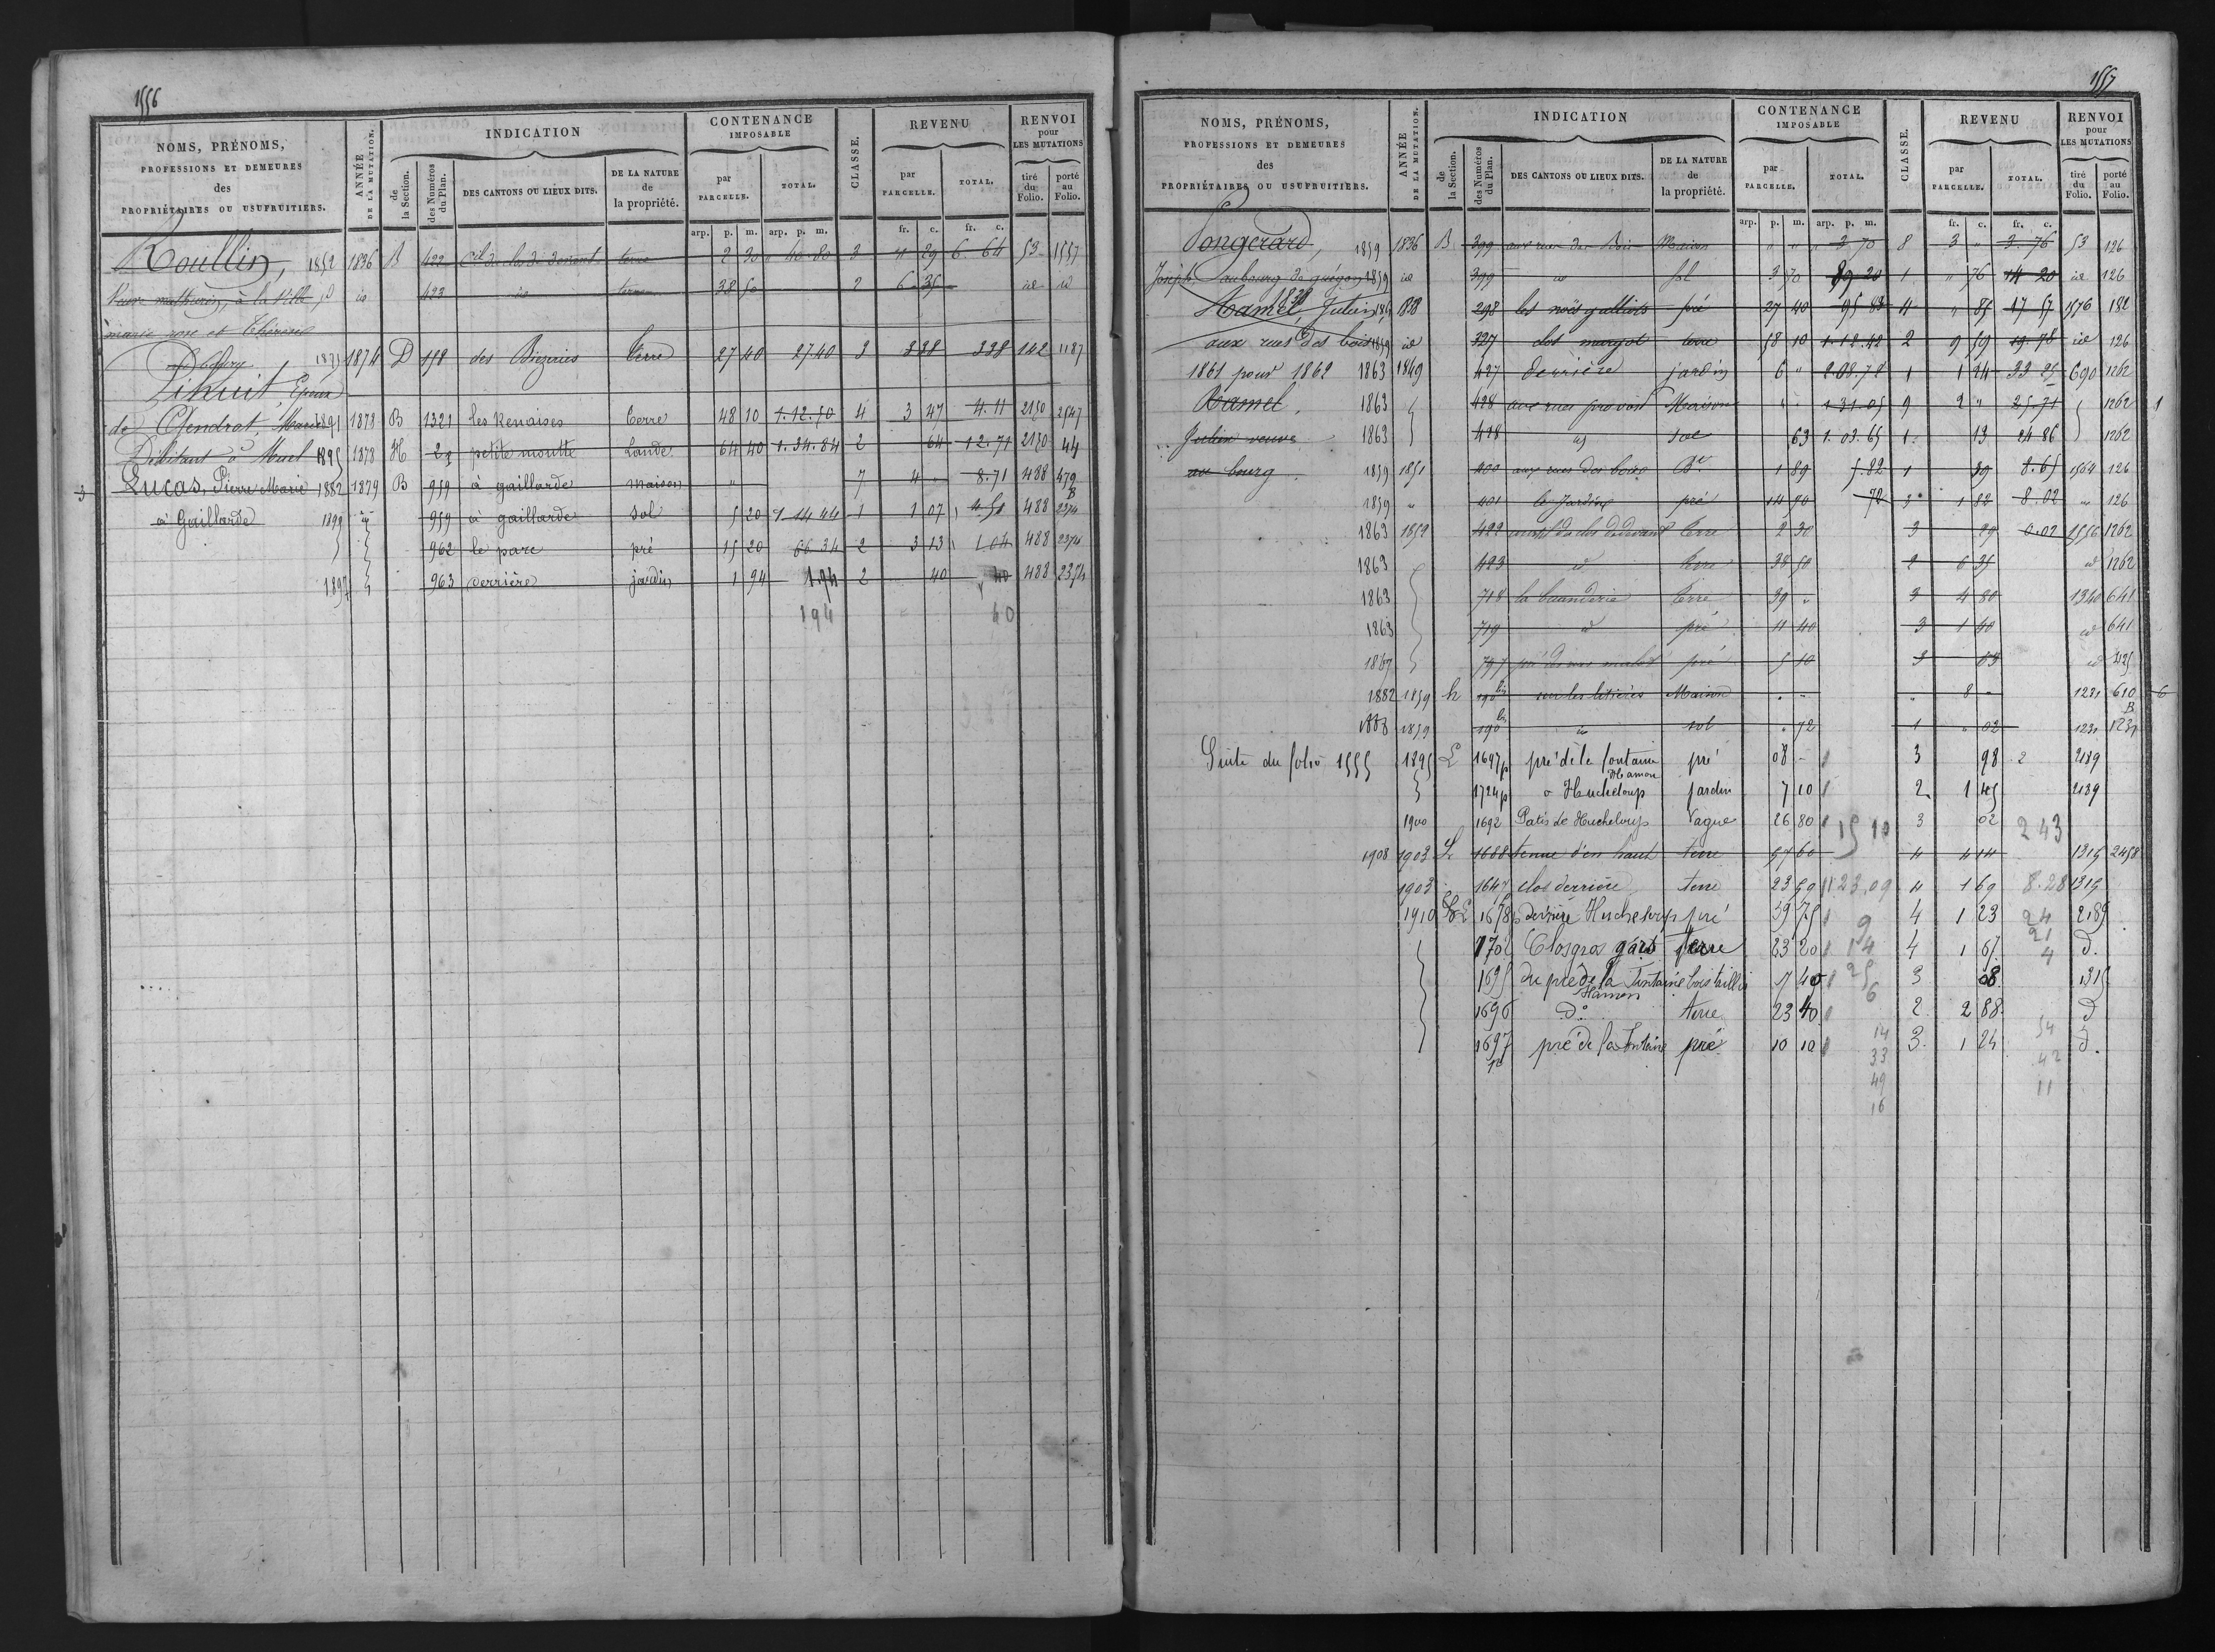 1556
NOMS, PRÉNOMS, PROFESSIONS ET DEMEURES des PROPRIÉTAIRES OU USUFRUITIERS.
ANNÉE DE LA MUTATION.
INDICATION
de la Section.
des Numéros du Plan.
DES CANTONS OU LIEUX DITS.
DE LA NATURE de la propriété.
CONTENANCE IMPOSABLE
par PARCELLE.
TOTAL.
CLASSE.
REVENU
par PARCELLE.
TOTAL.
RENVOI pour LES MUTATIONS
tiré du Folio.
porté au Folio.
arp. p. m. arp. p. m. fr. c. fr. c.
Roullin, 1852 1836 B 422 terre 2 30 40 80 3 " 29 6 64 53 1557
id 423 id terre 38 50 2 6 35 id id
marie rose et Thérèse
1875 1874 D 158 des Biezeries Terre 27 40 27.40 3 3 38 3 38 142 1187
Lihuit, Epoux
de Gendrot, Marie 1891 1878 B 1321 les Renaises Terre 48 10 1.12.50 4 3 47 4.11 2150 2547
Débitant à Muel 1895 1878 H petite moutte Lande 64 40 1.34.84 2 64 12.71 2150 44
3 Lucas, Pierre Marie 1882 1879 B 959 à gaillarde maison " 7 4 " 8.71 488 479
à Gaillarde 1899 id 959 à gaillarde sol 5 20 1 14 44 1 1 07 4.51 488 2374
962 le parc pré 15 20 66 34 2 3 13 1.04 488 2374
1897 963 derrière jardin 1 94 1.94 2 40 40 488 2374
194 " 40
1557
NOMS, PRÉNOMS, PROFESSIONS ET DEMEURES des PROPRIÉTAIRES OU USUFRUITIERS.
ANNÉE DE LA MUTATION.
INDICATION
de la Section.
des Numéros du Plan.
DES CANTONS OU LIEUX DITS.
DE LA NATURE de la propriété.
CONTENANCE IMPOSABLE
par PARCELLE.
TOTAL.
CLASSE.
REVENU
par PARCELLE.
TOTAL.
RENVOI pour LES MUTATIONS
tiré du Folio.
porté au Folio.
arp. p. m. arp. p. m. fr. c. fr. c.
Pongerard, 1859 1836 B 399 aux rues des Bois Maison " " 3 70 8 3 " 3.76 53 126
Joseph, 1859 id 399 id sol 3 70 89 20 1 " 76 14 20 id 126
Hamel, Julien 1838 298 pré 27 40 95 83 4 " 85 17 57 1576 182
aux rues des bois 1859 id 327 clos margot terre 58 10 1.12.42 2 9 59 19.78 id 126
1861 pour 1862 1863 1849 427 derrière jardin 6 " 2.08.78 1 1 24 33 25 690 1262
Hamel. 1863 428 Maison " 1 31.05 9 2 " 25.71 1262 1
Julien veuve 1863 428 id sol 63 1.03.65 1. 13 24 86 1262
au bourg. 1859 1851 400 aux rues des bois 1 89 5 82 1 39 8.65 1564 126
1859 " 401 le Jardin pré 14 50 72 3 1 82 8.02 " 126
1863 1852 422 Terre 2 30 3 29 0.02 1556 1262
1863 423 id Terre 38 50 2 6 35 id 1262
1863 718 la buanderie Terre 39 " 3 4 80 1340 641
1863 719 id pré 11 40 3 1 40 id 641
1867 797 pré 5 10 3 63 id 2125
1882 1859 h 190 bis Maison " " " 8 " 1231 610 6
1888 1859 190 bis id sol " 72 1 " 02 1231 B 1231
Suite du folio 1555 1895 L 1697p pré de la fontaine Hamon pré 08 - 3 98 2 2189
1724p o Hucheloup jardin 7 10 2 1 45 2189
1900 1692 Patis de Hucheloup Vague 26 80 15 10 3 02 2 43
1908 1903 L 1688 tenue d'en haut terre 57 60 4 4 14 1315 2458
1903 1647 clos derrière terre 23 59 1 23.09 4 1 69 8.28 1315
1910 L 1678p derrière Hucheloup pré 39 75 9 4 1 23 24 2189
1702 Clos gros gars terre 23 20 14 4 1 67 21 4 d.
1695 du pré de la Fontaine Hamon bois taillis 7 40 25 6 3 08 1315
1696 d° terre 23 40 2 2 88 d
1697 p pré de la Fontaine pré 10 10 14 3. 1 24 54 d.
33 42
49 11
16